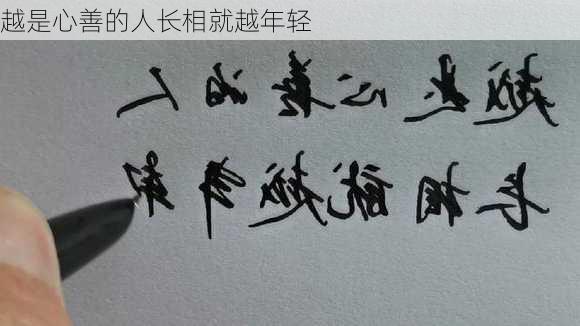 越是心善的人长相就越年轻
越是心善的人
长相就越年轻